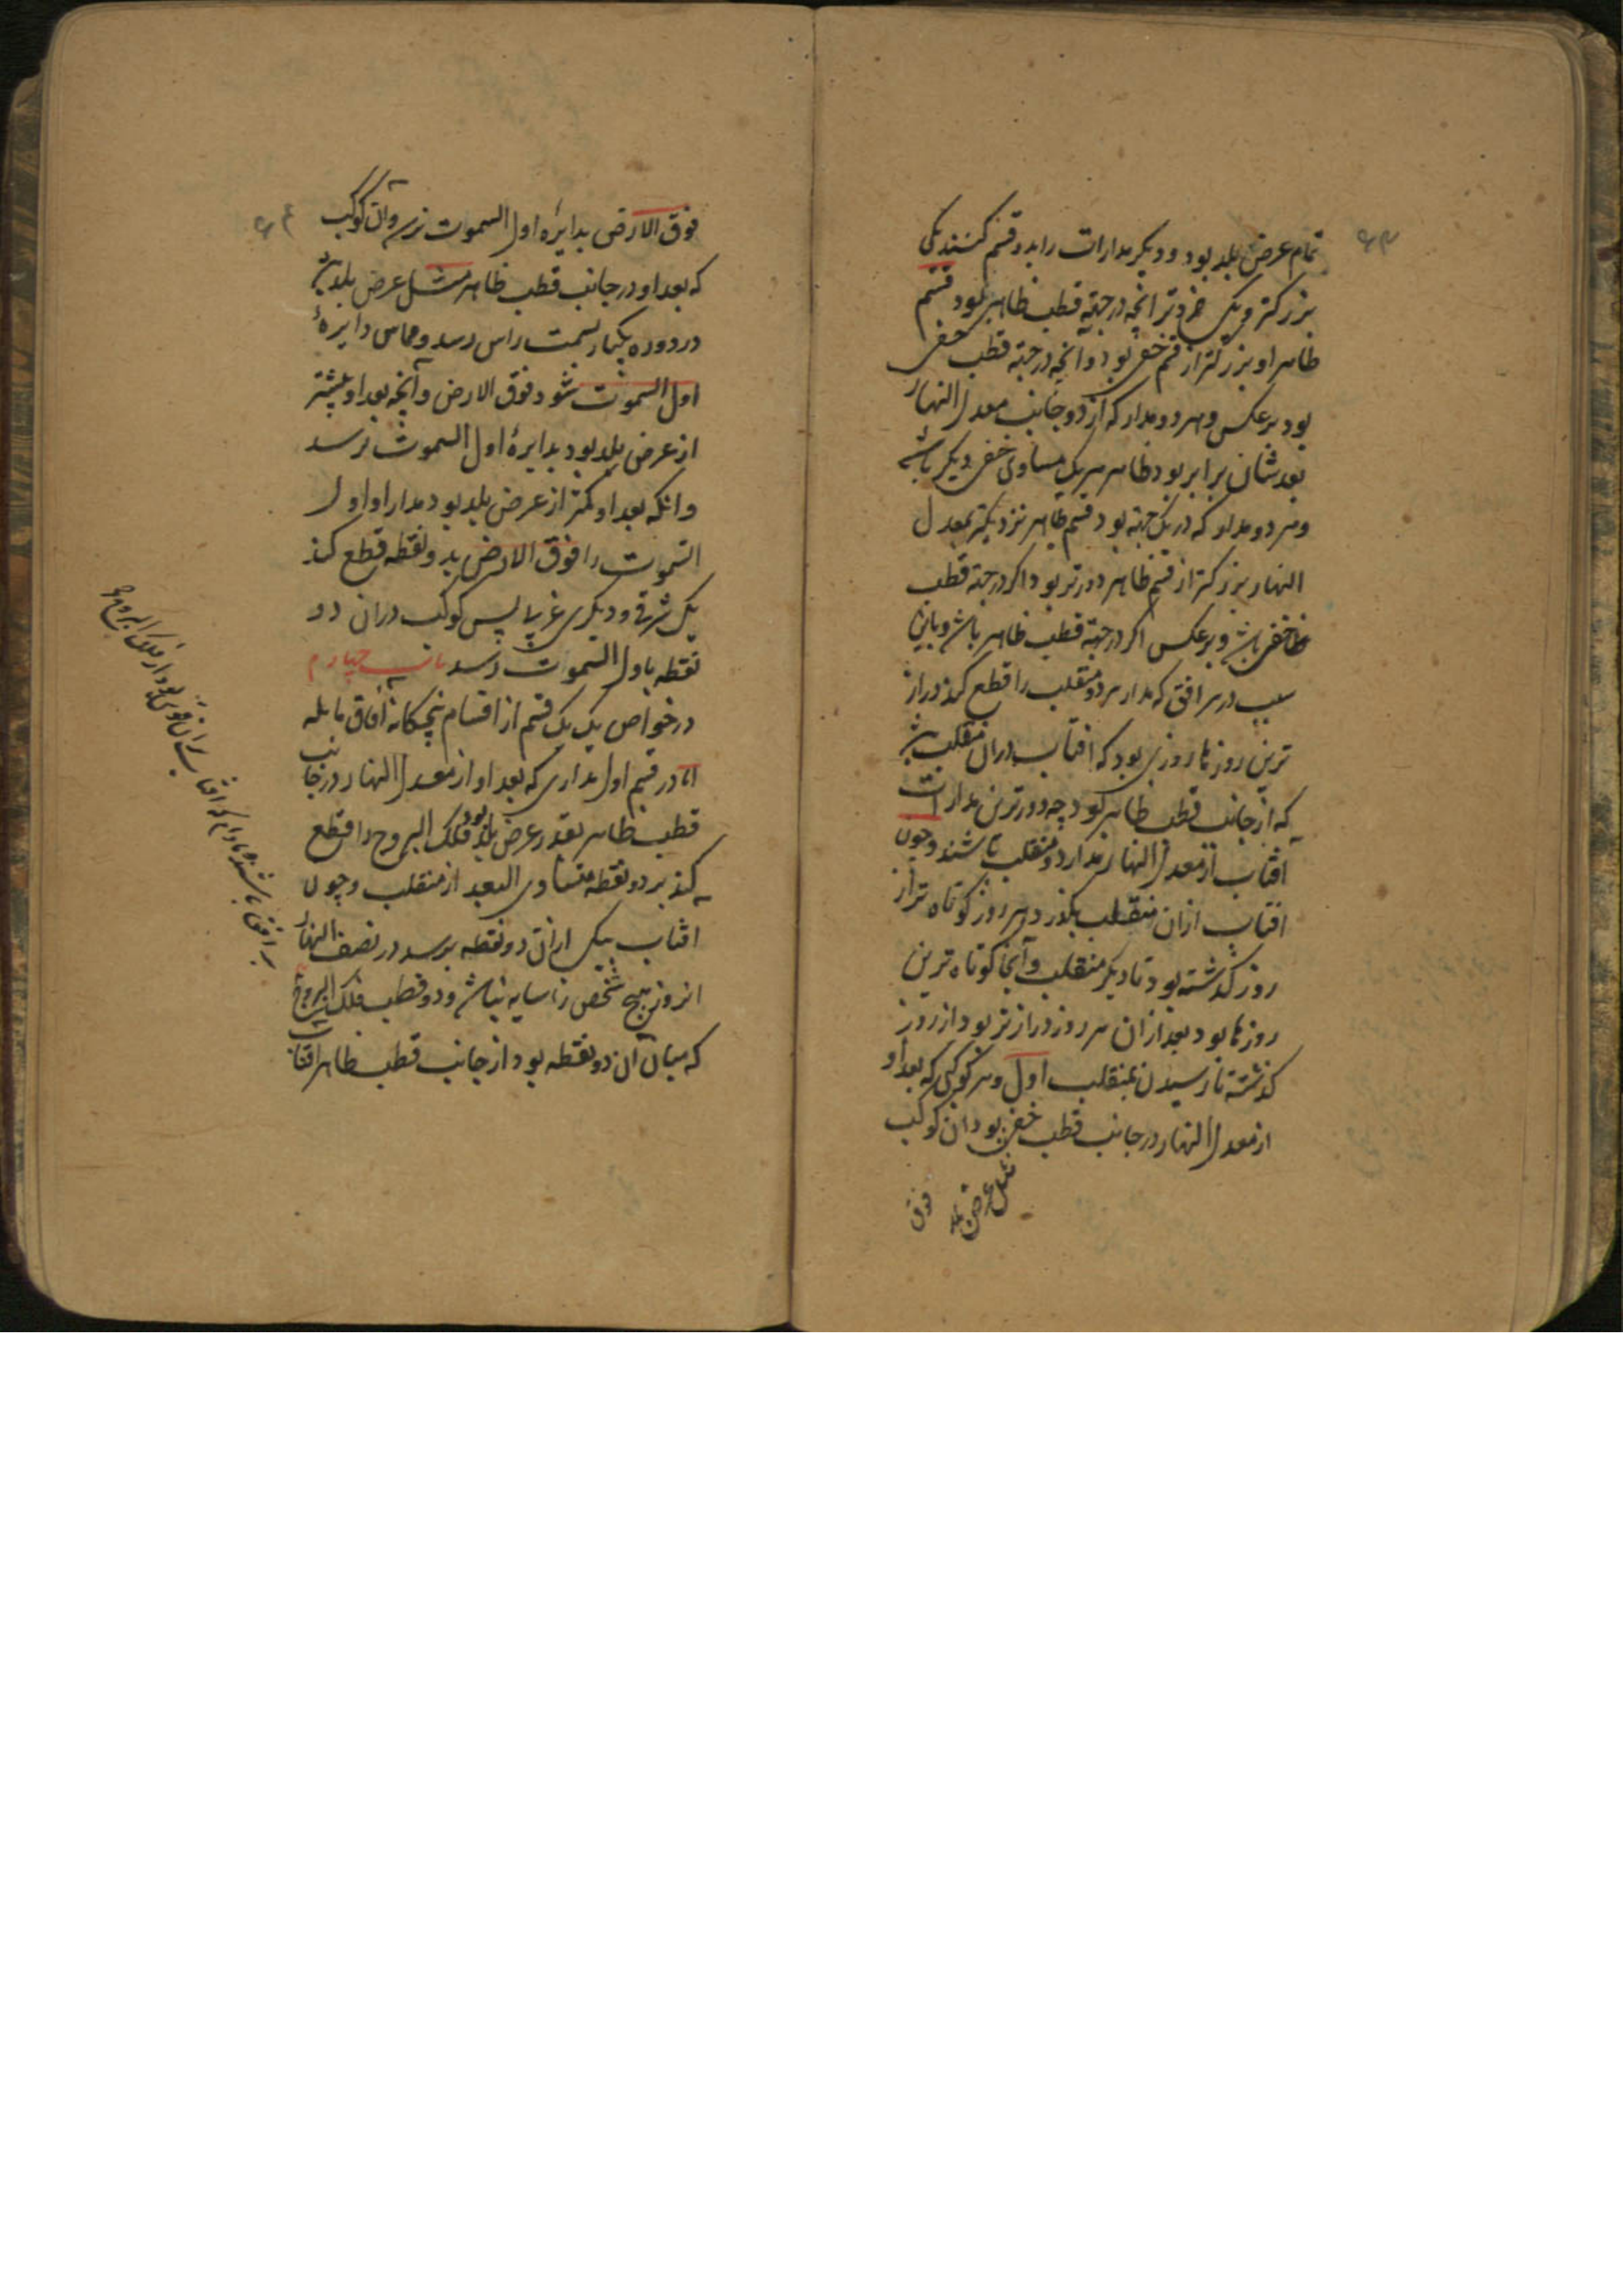 تمام عرض بلد بود و دیکر مدارات را بدو قسم کنند یکی
بزرکتر و یکی خردتر انچه در جهة قطب ظاهر بود قسم
ظاهر او بزرکتر از قسم خفی بود و آنچه در جهة قطب خفی
بود برعکس و هر دو مدار که از دو جانب معدل النهار
بعد شان برابر بود ظاهر هر یک مساوی خفی دیکر باشد
و هر دو مدار که در یک جهة بود قسم ظاهر نزدیکتر بمعدل
النهار بزرکتر از قسم ظاهر دورتر بود اکر در جهة قطب
خفی باشد و برعکس اکر در جهة قطب ظاهر باشد و باین
سبب در هر افق که مدار هر دو منقلب را قطع کند دراز
ترین روزها روزی بود که افتاب در ان منقلب باشد
که از جانب قطب ظاهر بود چه دورترین مدارات
افتاب از معدل النهار مدار دو منقلب باشند و چون
افتاب ازان منقلب بکذرد هر روز کوتاه تر از
روز کذشته بود تا دیکر منقلب و آنجا کوتاه ترین
روزها بود بعد ازان هر روز درازتر بود از روز
کذشته تا رسیدن بمنقلب اول و هر کوکبی که بعد او
از معدل النهار در جانب قطب خفی بود ان کوکب
مثل عرض بلد
فوق
فوق الارض بدایرهٔ اول السموت نرسد و آن کوکب
که بعد او در جانب قطب ظاهر مثل عرض بلد باشد
در دوره یکبار بسمت راس رسد و مماس دایرهٔ
اول السموت شود فوق الارض و آنچه بعد او بیشتر
از عرض بلد بود بدایرهٔ اول السموت نرسد
و انکه بعد او کمتر از عرض بلد بود مدار او اول
السموت را فوق الارض بدو نقطه قطع کند
یکی شرقی و دیکری غربی پس کوکب دران دو
نقطه باول السموت رسد باب چهارم
در خواص یک یک قسم از اقسام پنجکانه آفاق مایله
اما در قسم اول مداری که بعد او از معدل النهار در جانب
قطب ظاهر بقدر عرض بلد بود فلک البروج را قطع
کند بر دو نقطه متساوی البعد از منقلب و چون
افتاب بیکی ازان دو نقطه برسد در نصف النهار
انروز هیچ شخص را سایه نباشد و دو قطب فلک البروج
که میان آن دو نقطه بود از جانب قطب ظاهر افتاب